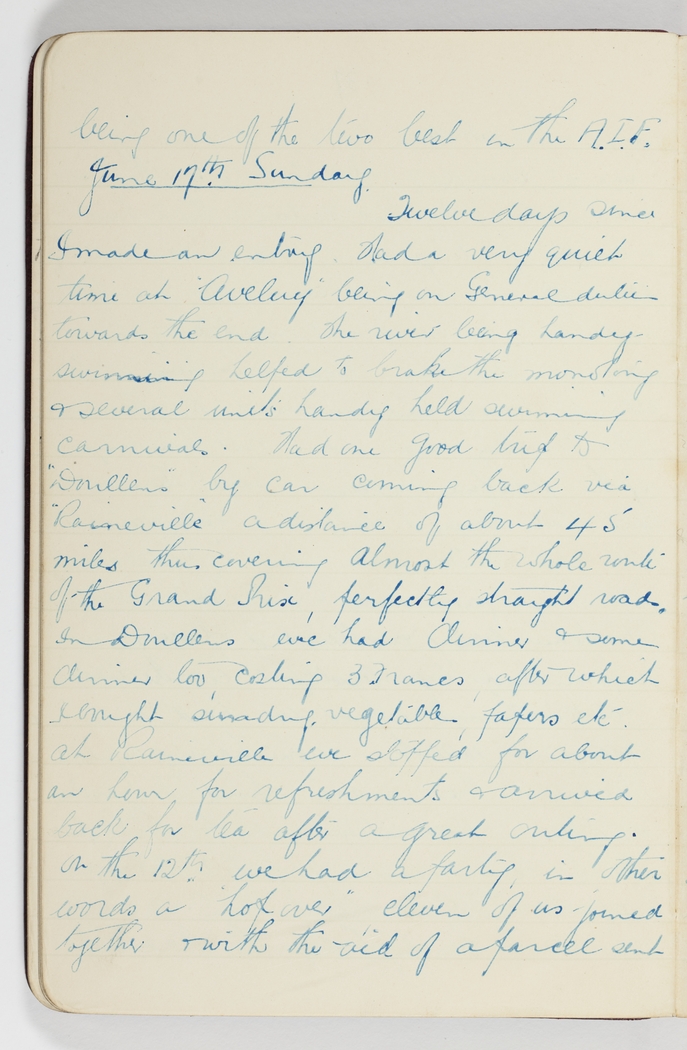 being one of the two best in the A.I.F.
June 17th. Sunday.
Twelve days since
I made an entry. Had a very quiet
time at "Aveluy" being on General duties
towards the end. The river being handy
swimming helped to brake the monotony
& several units handy held swimming
carnivals. Had one good trip to
"Doullens" by car coming back via
"Raineville" a distance of about 45
miles thus covering almost the whole route
of the Grand Prix, perfectly straight road.
In Doullens we had dinner & some
dinner too, costing 3 Francs, after which
I bought sundry vegetables, papers etc.
at Raineville we stopped for about
an hour for refreshments & arrived
back for tea after a great outing.
On the 12th. we had a party, in other
words a "hop over" eleven of us joined
together & with the aid of a parcel sent